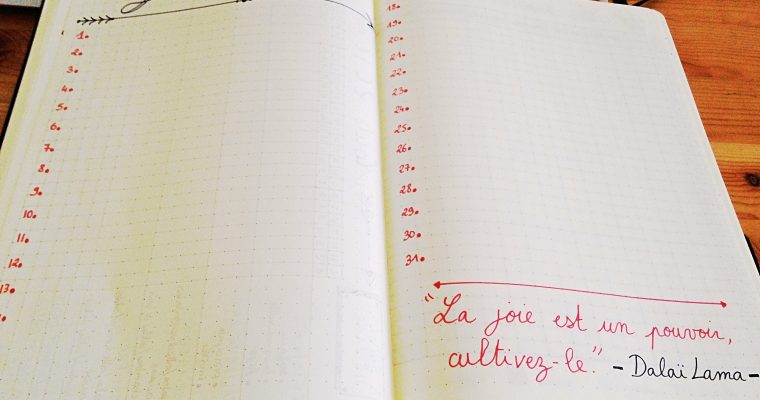 1.
2.
3.
4.
5.
6.
7.
8.
9.
10.
11.
12.
13.
18.
19.
20.
21.
22.
23.
24.
25.
26.
27.
28.
29.
30.
31.
"La joie est un pouvoir,
cultivez-le." - Dalaï Lama -